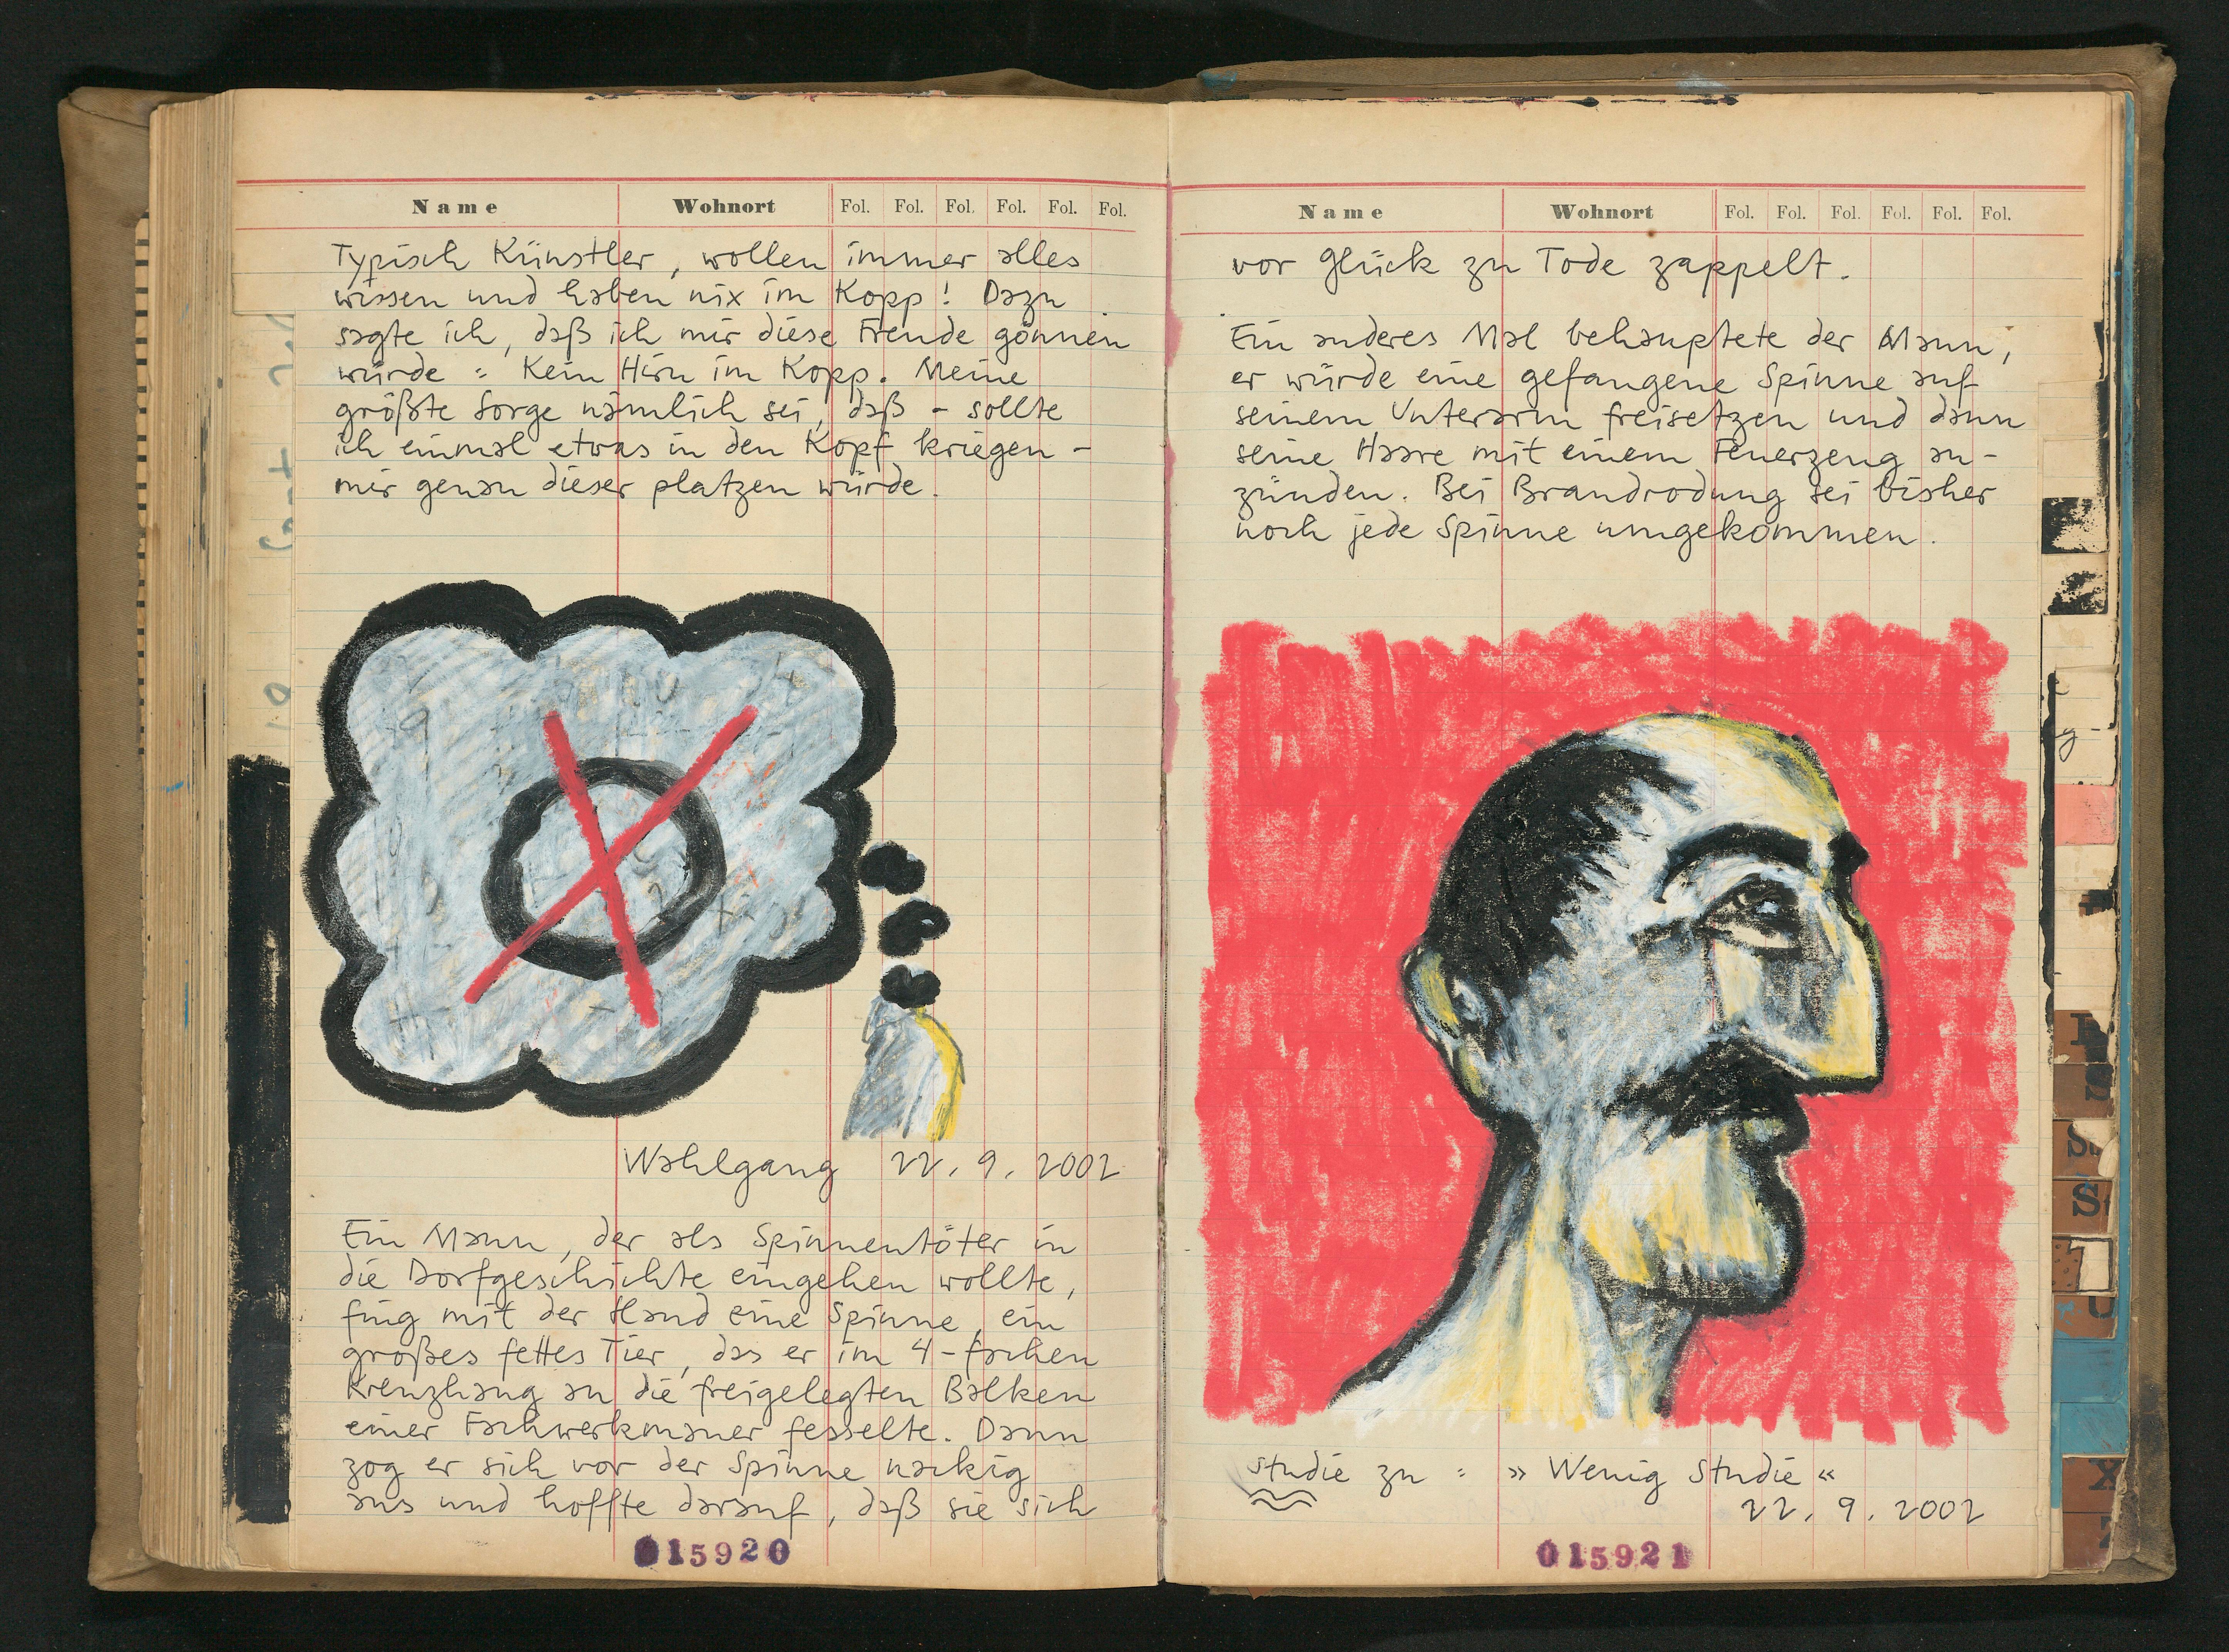 Name Wohnort Fol. Fol. Fol. Fol. Fol. Fol.
Typisch Künstler, wollen immer alles
wissen und haben nix im Kopp! Dazu
sagte ich, daß ich mir diese Freude gönnen
würde: Kein Hirn im Kopp. Meine
größte Sorge nämlich sei, daß - sollte
ich einmal etwas in den Kopf kriegen -
mir genau dieser platzen würde.
Wahlgang 22.9.2002
Ein Mann, der als Spinnentöter in
die Dorfgeschichte eingehen wollte,
fing mit der Hand eine Spinne, ein
großes fettes Tier, das er im 4-fachen
Kreuzhang an die freigelegten Balken
einer Fachwerkmauer fesselte. Dann
zog er sich vor der Spinne nackig
aus und hoffte darauf, daß sie sich
015920
Name Wohnort Fol. Fol. Fol. Fol. Fol. Fol.
vor Glück zu Tode zappelt.
Ein anderes Mal behauptete der Mann,
er würde eine gefangene Spinne auf
seinem Unterarm freisetzen und dann
seine Haare mit einem Feuerzeug an-
zünden. Bei Brandrodung sei bisher
noch jede Spinne umgekommen.
Studie zu: »Wenig Studie«
22.9.2002
015921